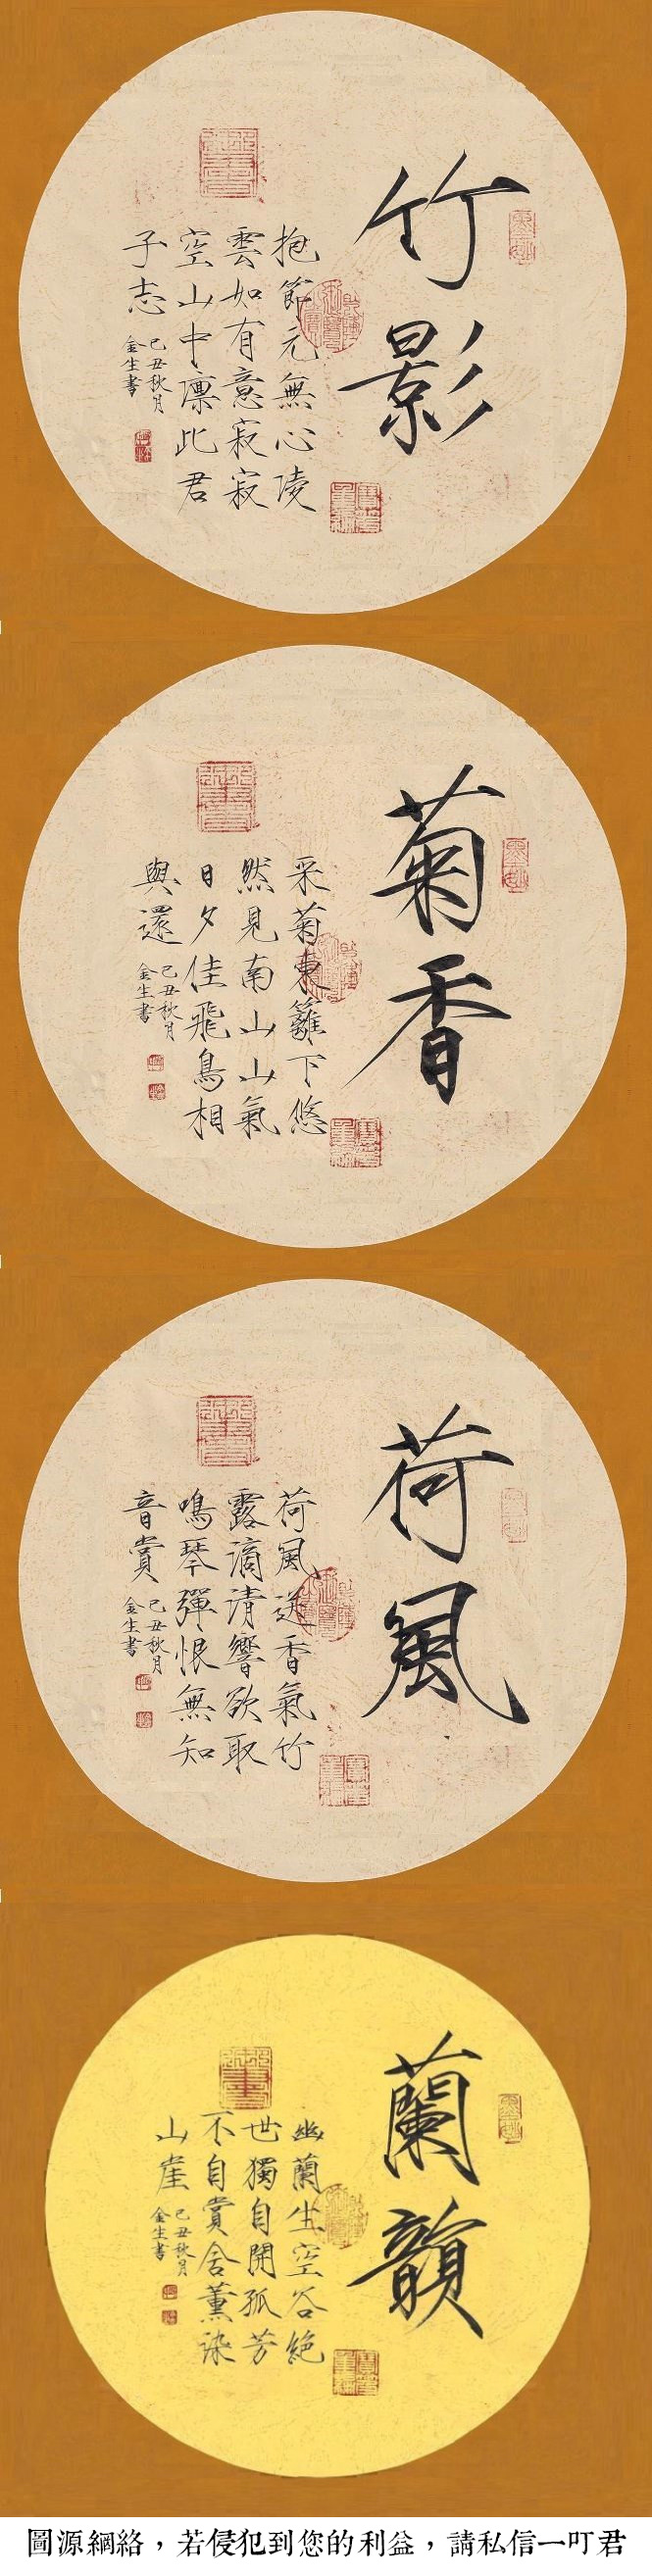 竹影
抱節元無心陵
雲如有意寂寂
空山中凛此君
子志
己丑秋月
金生書
菊香
采菊東籬下悠
然見南山山氣
日夕佳飛鳥相
與還
己丑秋月
金生書
荷風
荷風送香氣竹
露滴清響欲取
鳴琴彈恨無知
音賞
己丑秋月
金生書
蘭韻
幽蘭生空谷絕
世獨自開孤芳
不自賞含薰染
山崖
己丑秋月
金生書
圖源網絡，若侵犯到您的利益，請私信一叮君